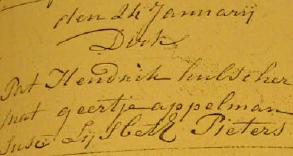 den 24 Januarij
Dirk
Pat Hendrik hulscher
Mat geertje appelman
Susc: Lijsbet Pieters